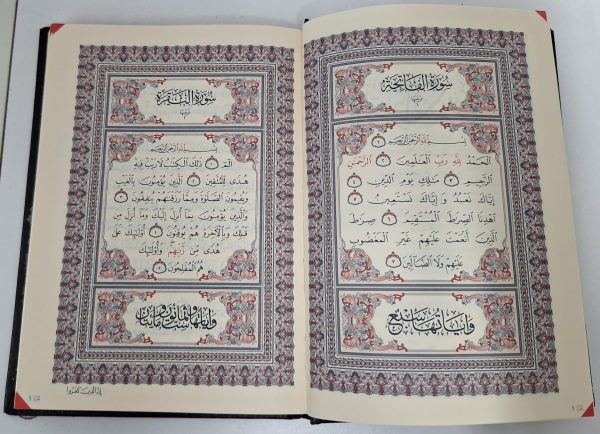 سُورَةُ الْفَاتِحَةِ
بِسْمِ اللَّهِ الرَّحْمَٰنِ الرَّحِيمِ ١
الْحَمْدُ لِلَّهِ رَبِّ الْعَٰلَمِينَ ٢ الرَّحْمَٰنِ
الرَّحِيمِ ٣ مَٰلِكِ يَوْمِ الدِّينِ ٤
إِيَّاكَ نَعْبُدُ وَإِيَّاكَ نَسْتَعِينُ ٥
اهْدِنَا الصِّرَٰطَ الْمُسْتَقِيمَ ٦ صِرَٰطَ
الَّذِينَ أَنْعَمْتَ عَلَيْهِمْ غَيْرِ الْمَغْضُوبِ
عَلَيْهِمْ وَلَا الضَّآلِّينَ ٧
وَآيَاتُهَا سَبْعٌ
سُورَةُ الْبَقَرَةِ
بِسْمِ اللَّهِ الرَّحْمَٰنِ الرَّحِيمِ
الٓمٓ ١ ذَٰلِكَ الْكِتَٰبُ لَا رَيْبَ فِيهِ
هُدًى لِلْمُتَّقِينَ ٢ الَّذِينَ يُؤْمِنُونَ بِالْغَيْبِ
وَيُقِيمُونَ الصَّلَوٰةَ وَمِمَّا رَزَقْنَٰهُمْ يُنْفِقُونَ ٣
وَالَّذِينَ يُؤْمِنُونَ بِمَا أُنْزِلَ إِلَيْكَ وَمَا أُنْزِلَ مِنْ
قَبْلِكَ وَبِالْآخِرَةِ هُمْ يُوقِنُونَ ٤ أُولَٰئِكَ عَلَىٰ
هُدًى مِنْ رَبِّهِمْ وَأُولَٰئِكَ
هُمُ الْمُفْلِحُونَ ٥
وَآيَاتُهَا مِائَتَانِ وَسِتٌّ وَثَمَانُونَ
إِنَّ الَّذِينَ كَفَرُوا